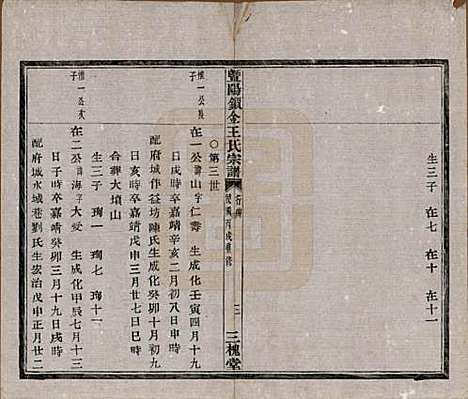 生三子 在七 在十 在十一
暨陽鎖金王氏宗譜
三槐堂
○第三世
惟一公長子
在一公諱山字仁壽 生成化壬寅四月十九
日戌時卒嘉靖辛亥二月初八日申時
配府城作益坊陳氏生成化癸卯十月初九
日亥時卒嘉靖戊申三月廿七日巳時
合葬大墳山
生三子 珣一 珣七 珣十一
惟一公次子
在二公諱海字大受 生成化甲辰七月十三
日子時卒嘉靖癸卯三月十九日戌時
配府城水城巷劉氏生宏治戊申正月廿二